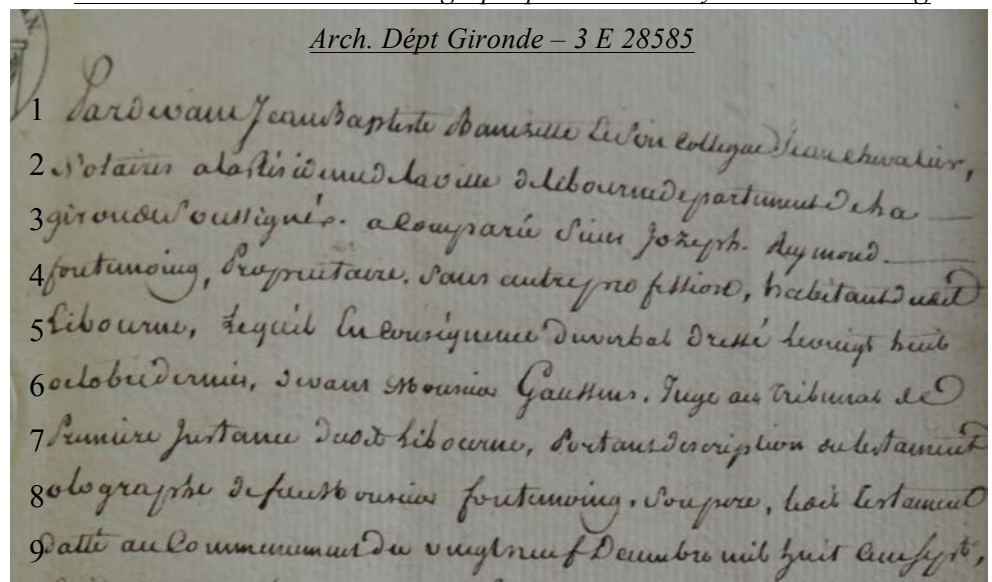 Arch. Dépt Gironde – 3 E 28585
1 Pardevant Jean Baptiste Et Son Collegue Jean chevalier,
2 Notaires a la Residence de la ville de libourne departement de la
3 gironde Soussignés. a Comparu Sieur Jozeph. Reymond.
4 fontemoing, Propriétaire. Sans autre profession, habitant dudit
5 Libourne, Lequel En Conséquence du verbal dressé le vingt huit
6 octobre dernier, devant Monsieur Gaussens. Juge au Tribunal de
7 Premiere Instance dudit Libourne, Portant description du testament
8 olographe de feu Monsieur fontemoing. Son pere, ledit Testament
9 datté au Commencement du vingt neuf Decembre mil huit Cent Sept,